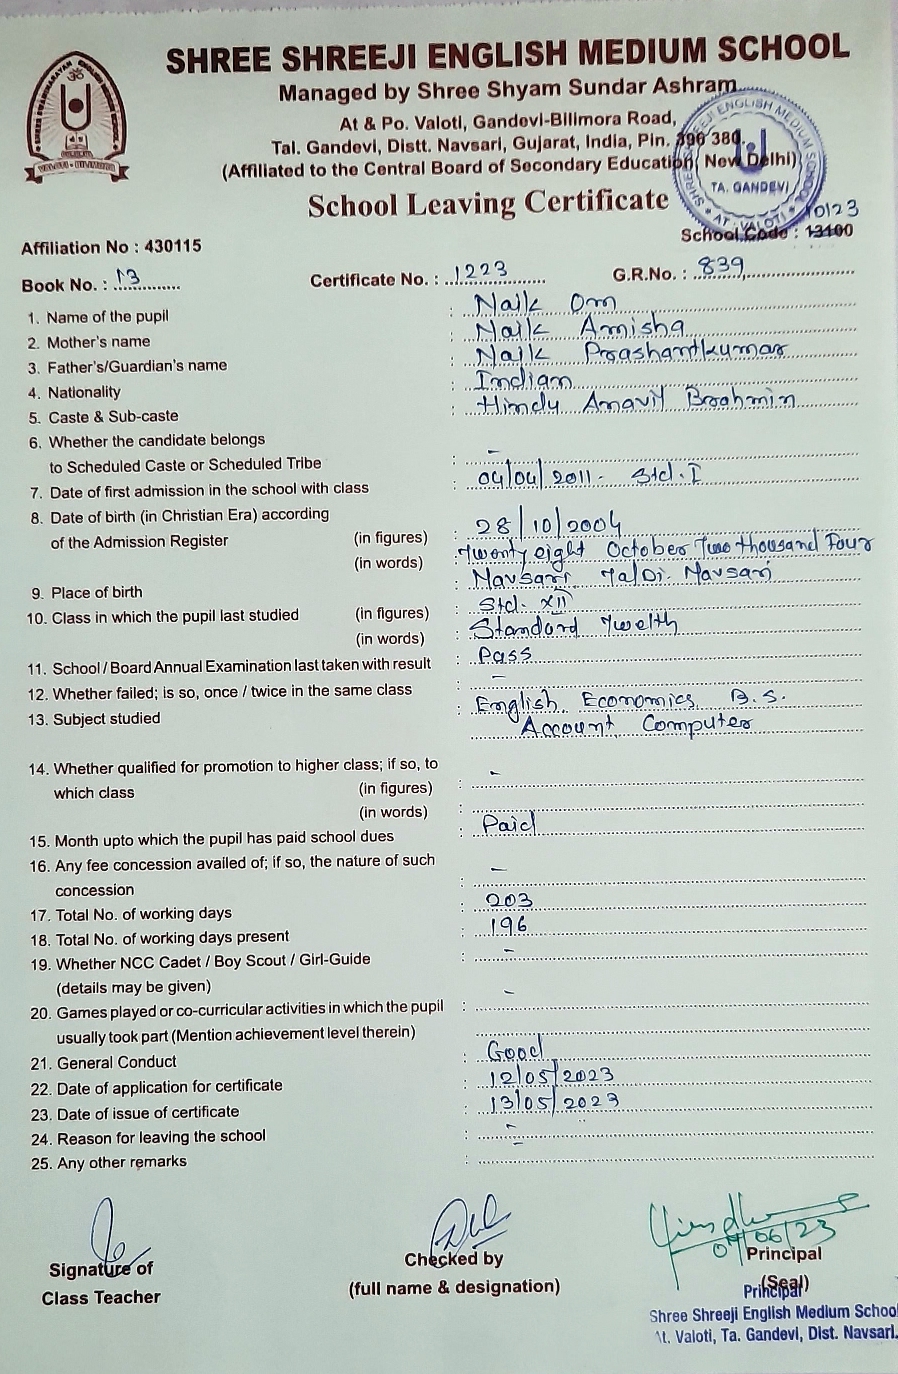 SHREE SHREEJI ENGLISH MEDIUM SCHOOL
Managed by Shree Shyam Sundar Ashram
At & Po. Valoti, Gandevi-Bilimora Road,
Tal. Gandevi, Distt. Navsari, Gujarat, India, Pin. 396 380
(Affiliated to the Central Board of Secondary Education, New Delhi)
TA. GANDEVI
School Leaving Certificate
10123
Affiliation No : 430115 School Code : 13100
Book No. : 13 Certificate No. : 1223 G.R.No. : 839
1. Name of the pupil : Naik Om
2. Mother's name : Naik Amisha
3. Father's/Guardian's name : Naik Prashantkumar
4. Nationality : Indian
5. Caste & Sub-caste : Hindu Anavil Brahmin
6. Whether the candidate belongs
to Scheduled Caste or Scheduled Tribe : -
7. Date of first admission in the school with class : 04/04/2011- Std.I
8. Date of birth (in Christian Era) according
of the Admission Register (in figures) : 28/10/2004
(in words) : Twenty eight October Two thousand Four
9. Place of birth : Navsari Ta/Di. Navsari
10. Class in which the pupil last studied (in figures) : Std. XII
(in words) : Standard Twelth
11. School / Board Annual Examination last taken with result : Pass
12. Whether failed; is so, once / twice in the same class : -
13. Subject studied : English, Economics, B.S.
Account, Computer
14. Whether qualified for promotion to higher class; if so, to
which class (in figures) : -
(in words) :
15. Month upto which the pupil has paid school dues : Paid
16. Any fee concession availed of; if so, the nature of such
concession : -
17. Total No. of working days : 203
18. Total No. of working days present : 196
19. Whether NCC Cadet / Boy Scout / Girl-Guide : -
(details may be given)
20. Games played or co-curricular activities in which the pupil : -
usually took part (Mention achievement level therein)
21. General Conduct : Good
22. Date of application for certificate : 12/05/2023
23. Date of issue of certificate : 13/05/2023
24. Reason for leaving the school : -
25. Any other remarks : -
07/06/23
Signature of Checked by Principal
Class Teacher (full name & designation) (Seal)
Principal
Shree Shreeji English Medium School
At. Valoti, Ta. Gandevi, Dist. Navsari.